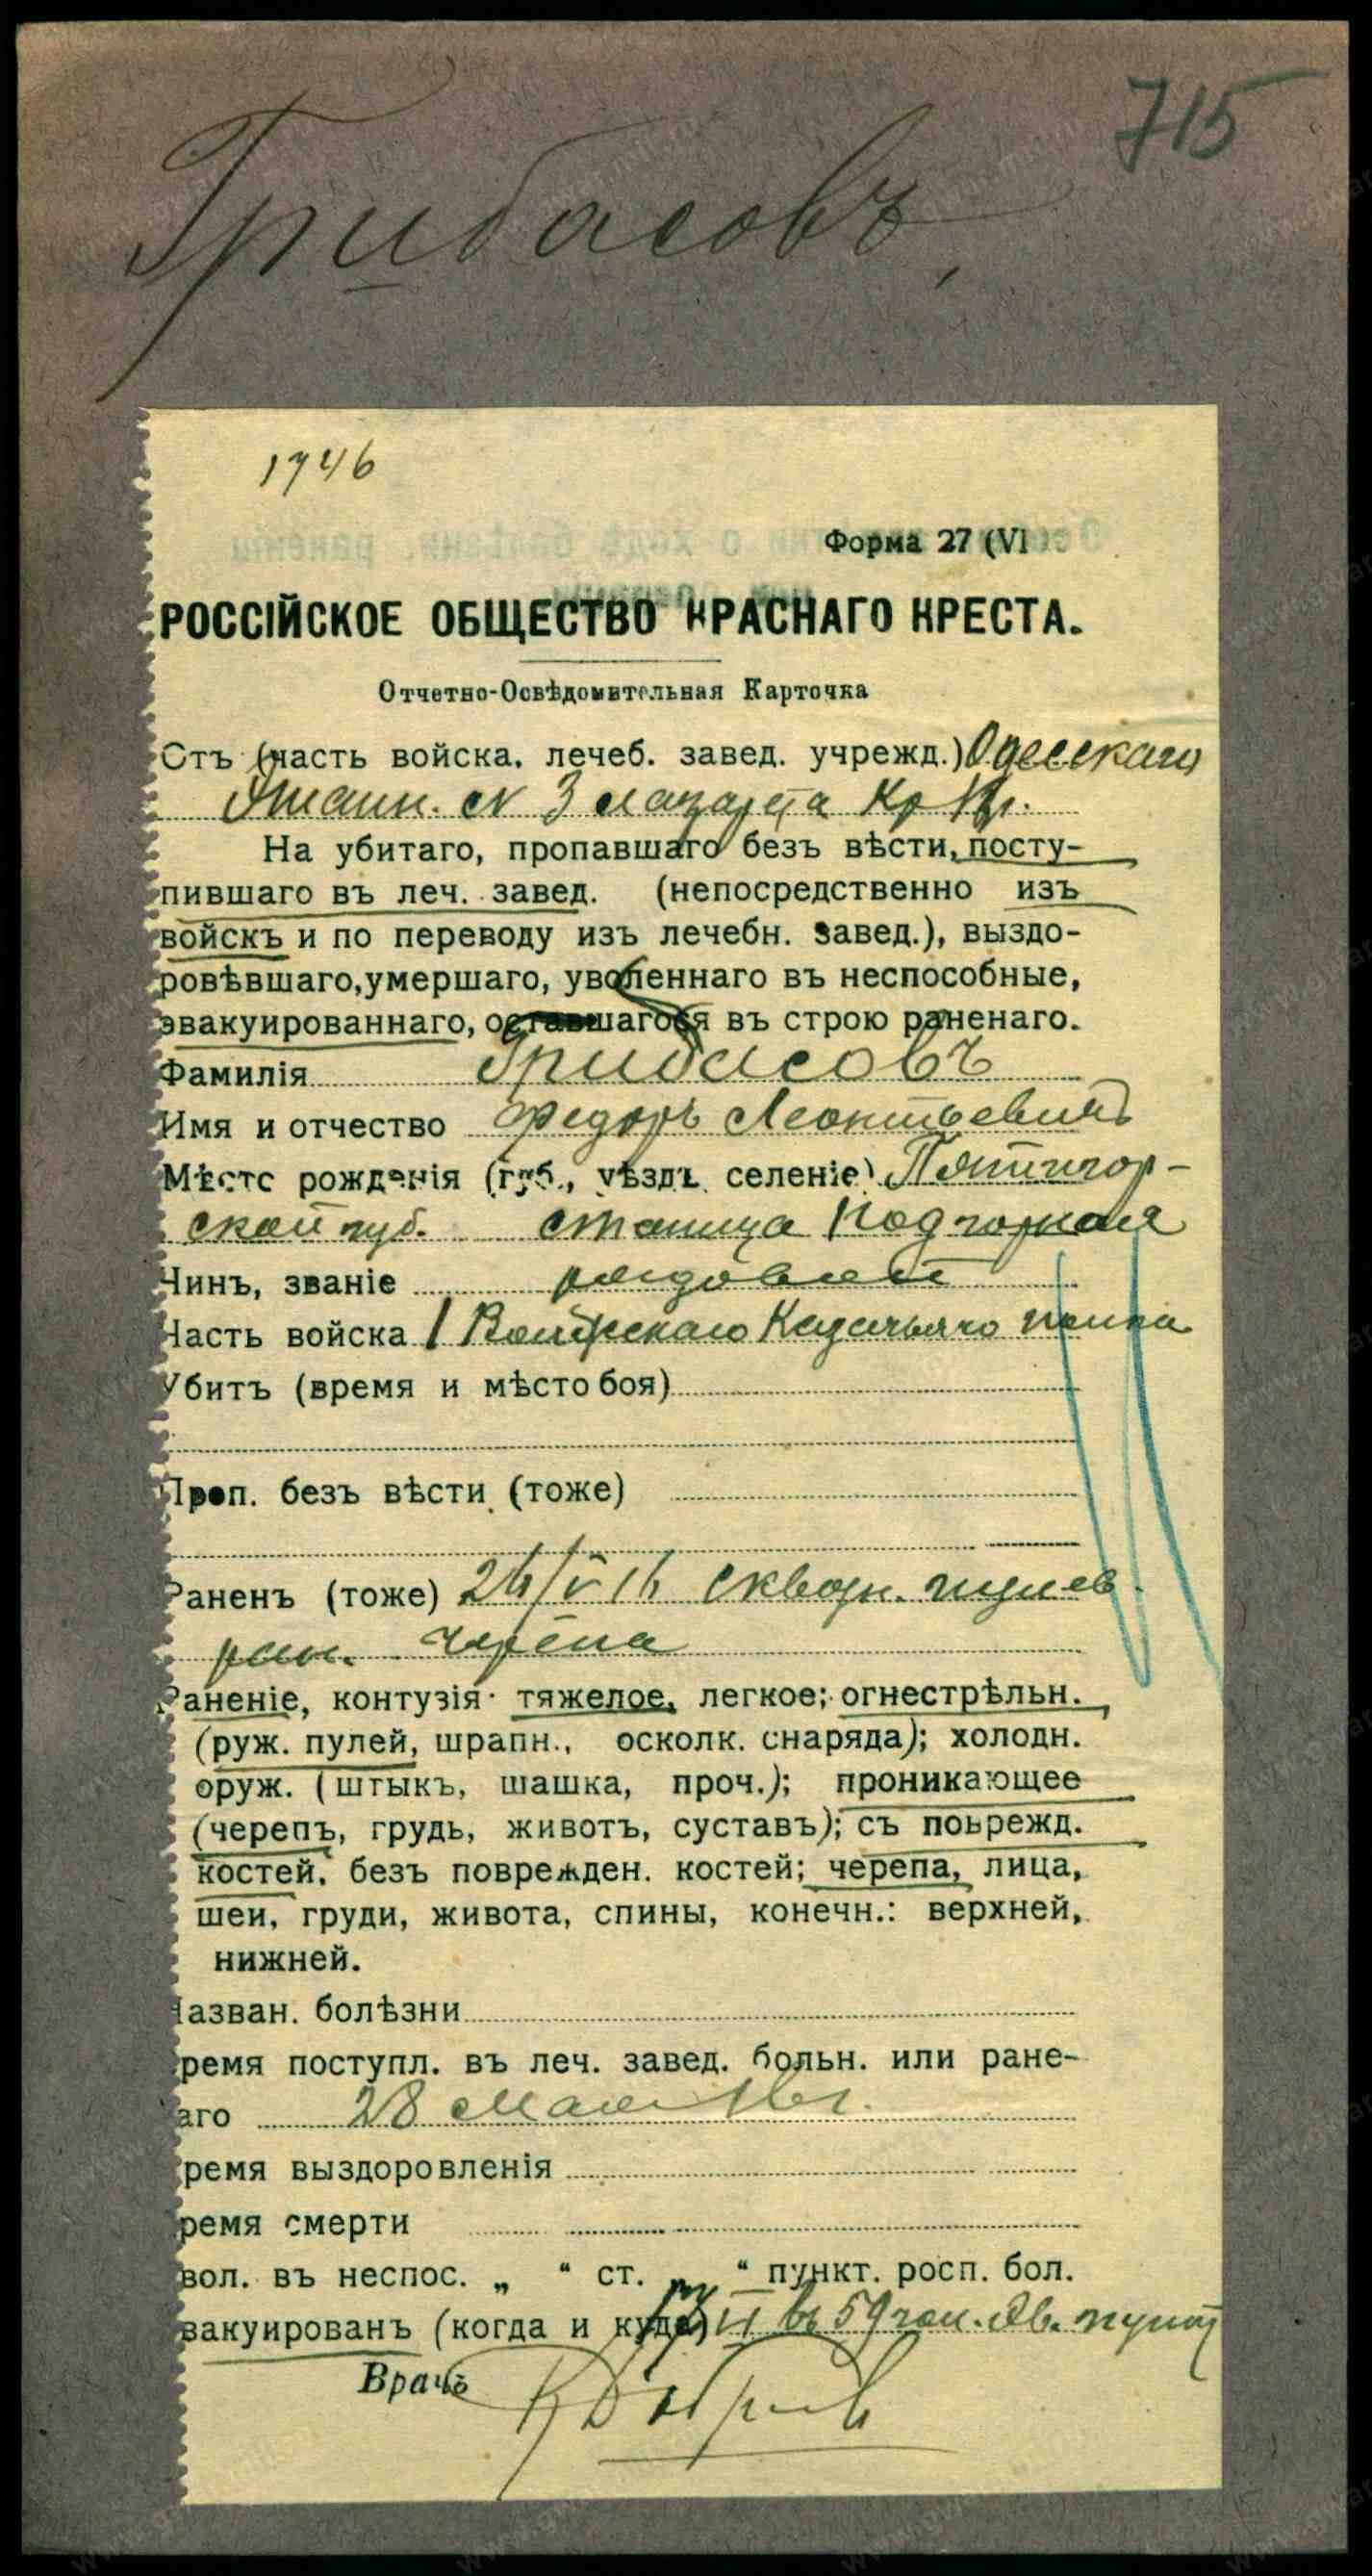 715
Грибасовъ
1746
Форма 27 (VI
РОССІЙСКОЕ ОБЩЕСТВО КРАСНАГО КРЕСТА.
Отчетно-Освѣдомительная Карточка
Отъ (часть войска, лечеб. завед. учрежд.) Одесскаго
Этапн. № 3 лазарета Кр Кр.
На убитаго, пропавшаго безъ вѣсти, посту-
пившаго въ леч. завед. (непосредственно изъ
войскъ и по переводу изъ лечебн. завед.), выздо-
ровѣвшаго, умершаго, уволеннаго въ неспособные,
эвакуированнаго, оставшагося въ строю раненаго.
Фамилія Грибасовъ
Имя и отчество Федоръ Леонтьевичъ
Мѣсто рожденія (губ., уѣздъ, селеніе) Пятигор-
ской губ. станица Подгорная
Чинъ, званіе рядовой
Часть войска 1 Казачьяго полка
Убитъ (время и мѣсто боя)
Проп. безъ вѣсти (тоже)
Раненъ (тоже) 24/V 16 сквозн. пулев.
ран. черепа
Раненіе, контузія: тяжелое, легкое; огнестрѣльн.
(руж. пулей, шрапн., осколк. снаряда); холодн.
оруж. (штыкъ, шашка, проч.); проникающее
(черепъ, грудь, животъ, суставъ); съ поврежд.
костей, безъ поврежден. костей; черепа, лица,
шеи, груди, живота, спины, конечн.: верхней,
нижней.
Назван. болѣзни
ремя поступл. въ леч. завед. больн. или ране-
аго 28 Мая 16 г.
ремя выздоровленія
ремя смерти
вол. въ неспос. „ “ ст. „ “ пункт. росп. бол.
вакуированъ (когда и куда) VI въ 59 гол. эв. пункт
Врачъ